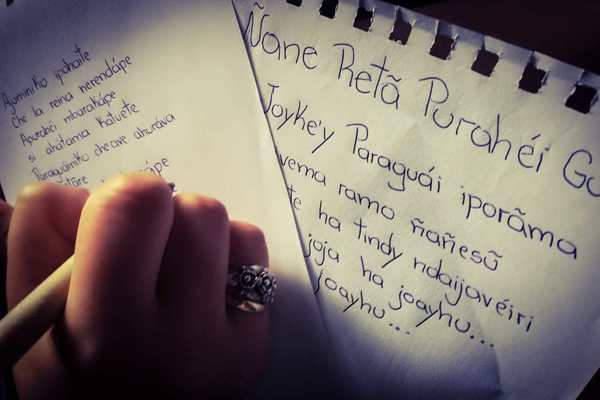 Ayminiko ipohaite
Che la reina nerendápe
Apurahéi mbarakápe
si ahátama katuete
Paraguáiniko cheave ahuráva
Ñane Retã Purahéi Gu
Joyke'y Paraguái iporãma
vema ramo ñañesũ
te ha tindy ndaijavéiri
joja ha joayhu...
joayhu...